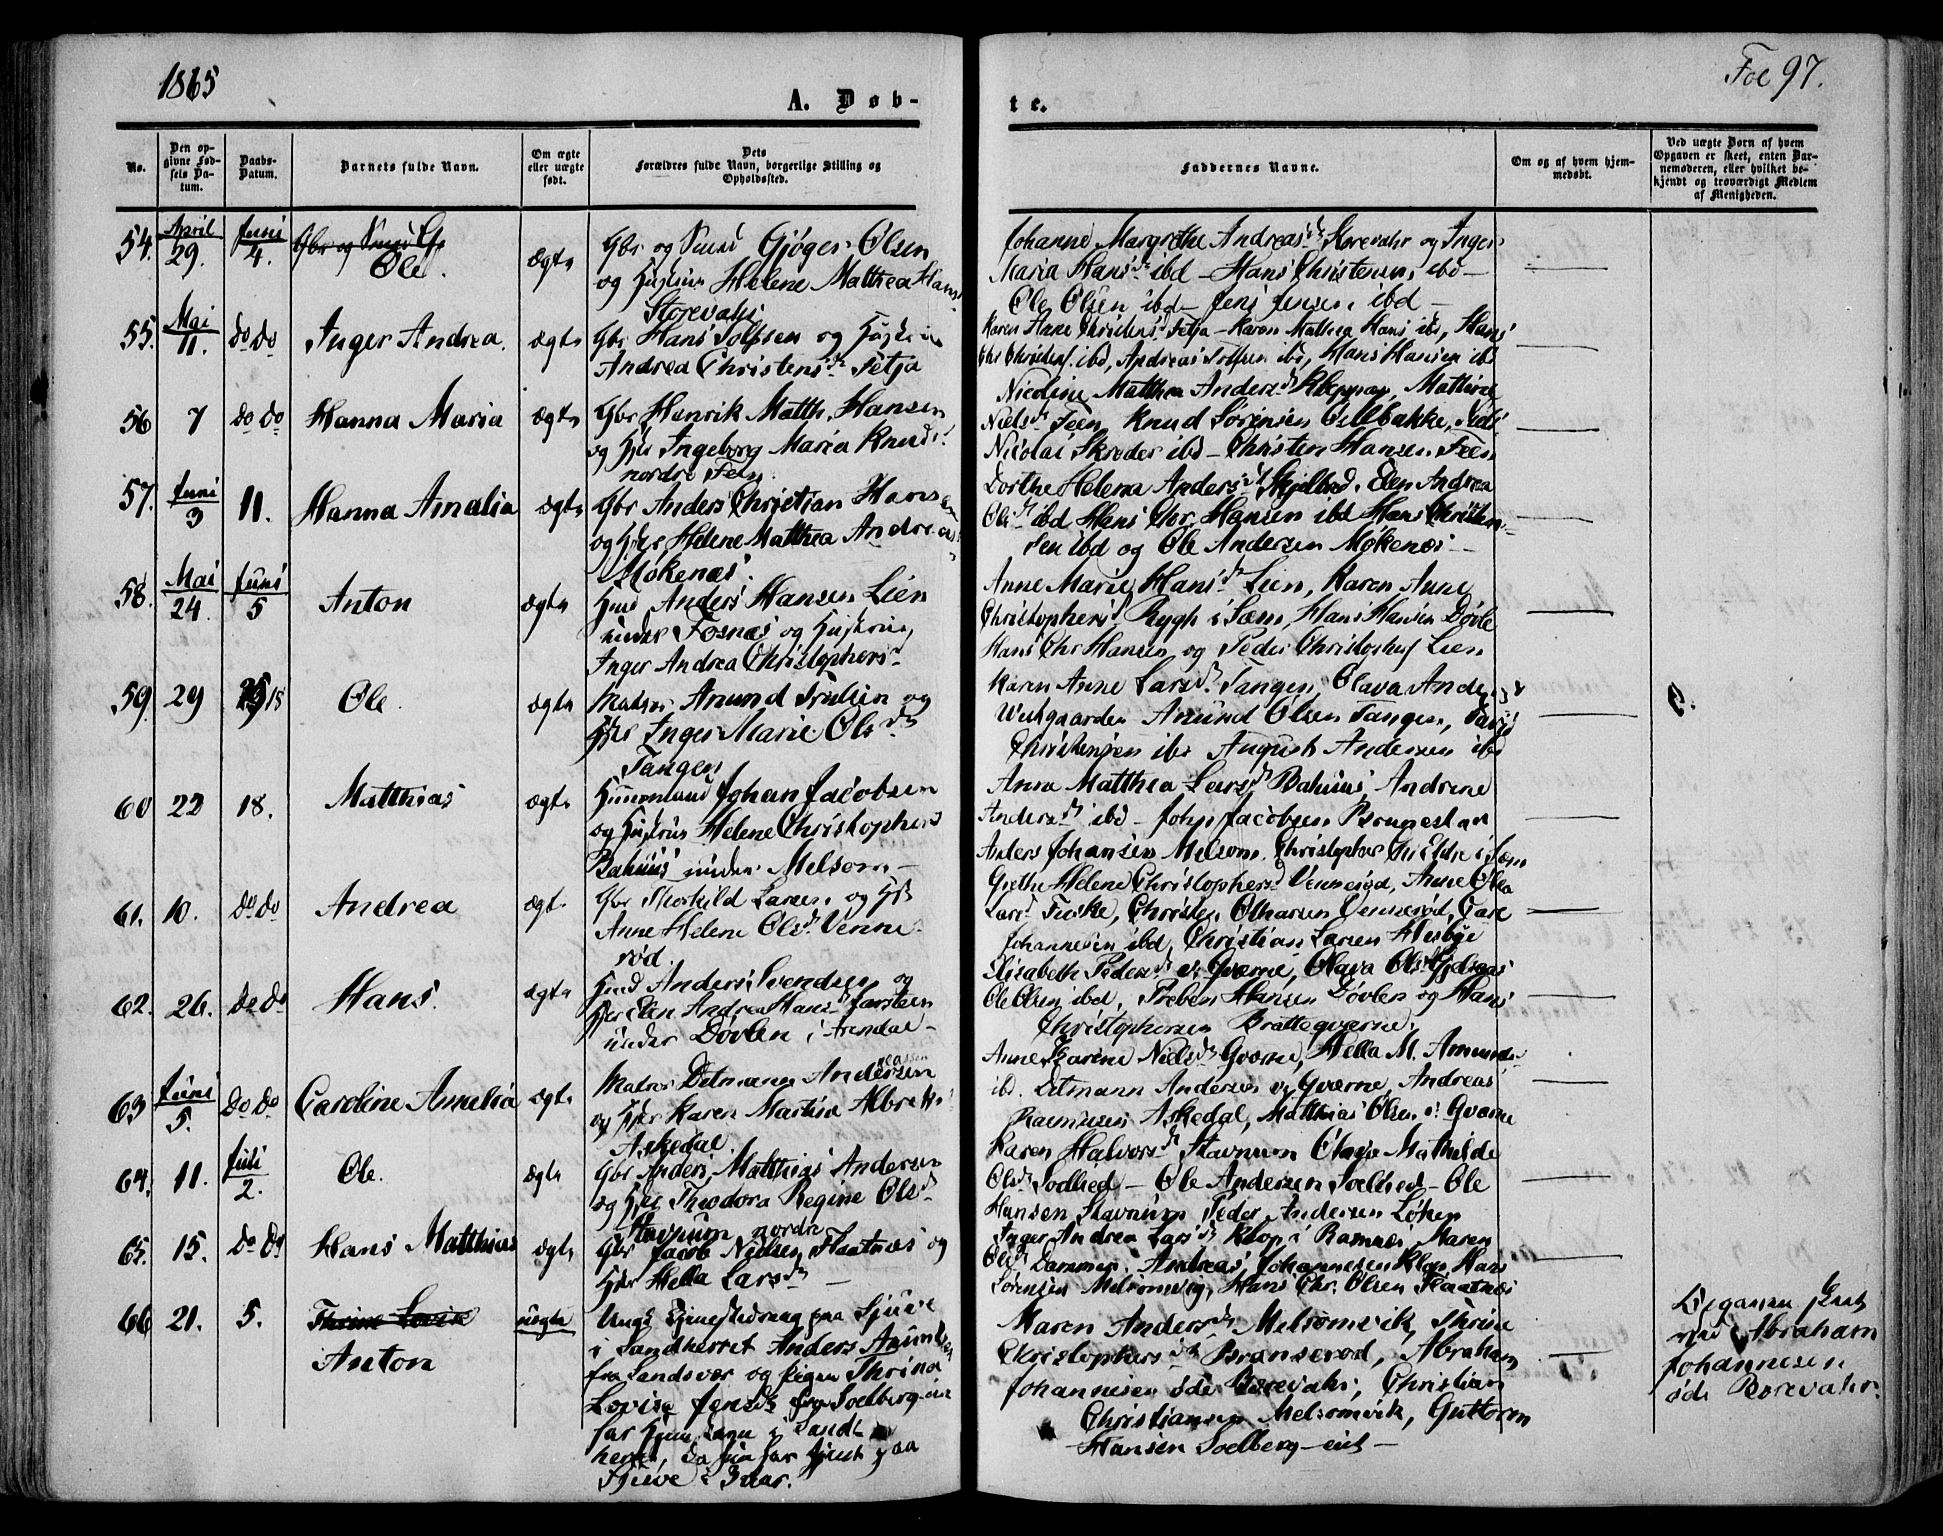 1865
A. Døb-
te.
Fol 97.
No.
Den op-
givne Fød-
sels Da-
tum.
Daabs-
Datum.
Barnets fulde Navn.
Om ægte
eller uægte
født.
Dets
Forældres fulde Navn, borgerlige Stilling og
Opholdssted.
Faddernes Navne.
Om og af hvem hjem-
medøbt.
Ved uægte Børn af hvem
Opgaven er skeet, enten Bar-
nemoderen, eller hvilket be-
kjendt og troværdigt Medlem
af Menigheden.
54. April 29. Juni 4.
Ole.
ægte
Gbr og Smed Gjøger Olsen
og Hustru Helene Matthea Hans
Storevahr
Johanne Margrethe Andreasd Storevahr og Inger
Maria Hansd ibd - Hans Christensen ibd -
Ole Olsen ibd - Jens Jensen ibd -
55. Mai 11. do do Inger Andrea. ægte
Gbr Hans Tolfsen og Hustru
Andrea Christensd Fetja
Karen Christensd Fetja - Karen Mathea Hans ibd, Hans
Chr Christens. ibd, Andreas Tolfsen ibd, Hans Hansen ibd
56 7 do do Hanna Maria ægte
Gbr Henrik Matth. Hansen
og Hstr Ingeborg Maria Knuds
nordre Feen
Nicoline Matthea Andersd Matthea
Nielsd Feen, Knud Sørensen
Nicolai Skreder ibd - Christen Hansen Feen
57. Juni 3 11. Hanna Amalia ægte
Gbr Anders Christian Hansen
og Hstr Helene Matthea Andreas
Møkenæs.
Dorthe Helena Andersd Elen Andrea
Olsd ibd Hans Chr. Hansen ibd Hans Christen-
sen ibd og Ole Andersen Møkenæs -
58. Mai 24. Juni 5 Anton ægte
Husm Anders Hansen Lien
under Fosnæs og Hustru
Inger Andrea Christophersd
Anne Marie Hansd Lien, Karen Anne
Christophersd Rygh i Sæm, Hans Hansen Døvle
Hans Chr Hansen og Peder Christophers Lien
59. 29 18 Ole. ægte
Matros Anund Iulien og
Hstr Inger Marie Olsd
Tangen
Karen Anne Larsd Tangen, Olava Anders
Anund Olsen Tangen,
Christensen ibd August Andersen ibd
60 22 18. Matthias ægte
Husmand Johan Jacobsen
og Hustru Helene Christophers
Bahuus under Melsom -
Anna Matthea Larsd Bahuus, Andrine
Andersd ibd - John Jacobsen
Anders Johansen Melsom, Christopher i Sæm
61. 10. do do Andrea ægte
Gbr Thorkild Larsen og Hstr
Anne Helene Olsd Venne-
rød.
Grethe Helene Christophersd Vennerød, Anne Olea
Larsd Fuske, Christen Olharsen Vennerød, Lars
Johannesen ibd, Christian Larsen Hesbye
62. 26. do do Hans. ægte
Husm Anders Svendsen og
Hstr Elen Andrea Hansd
under Døvlen i Arendal -
Elisabeth Pedersd Gværne, Olava Olsd
Ole Olsen ibd, Preben Hansen Døvlen og Hans
Christophersen Brattegværne.
63 Juni 5. do do Caroline Amelia ægte
Matros Detmann Andersen
og Hstr Karen Martina Albrekts
Askedal.
Anne Karine Nielsd Gværne, Hella M. Amunds
ibd. Detmann Andersen Gværne, Andreas
Rasmussen Askedal, Matthias Olsen Gværne
64. 11. Juli 2. Ole. ægte
Gbr Anders Matthias Andersen
og Hstr Theodora Regine Olsd
Stavnum nordre
Karen Halvorsd Stavnum Olava Mathilde
Olsd Soelhed - Ole Andersen Soelhed - Ole
Hansen Stavnum Peder Andersen Løken
65. 15. do do Hans Matthias ægte
Gbr Jacob Nielsen Flaatnæs og
Hstr Hella Larsd -
Inger Andrea Larsd Klop i Ramnæs Maren
Olsd Dammen. Andreas Johannesen Klop, Hans
Sørensen Melsomvig, Hans Chr. Olsen Flaatnæs
66 21. 5. Thrine Lovise
Anton
uægte
Ungk Tjenestedreng paa Hjuve
i Sandherret Anders Anundsen
fra Sandsvær og Pigen Thrina
Lovise Jensd fra Soelberg eie
far Hjem i Sand-
herret, da hun har tjent paa
Hjuve i Svar.
Maren Andersd Melsomvik, Thrine
Christophersd Brænserød, Abraham
Johannesen øde Borevahr, Christian
Christiansen Melsomvik, Guttorm
Hansen Soelberg-eie -
Opgaven skeet
ved Abraham
Johannesen
øde Borevahr.